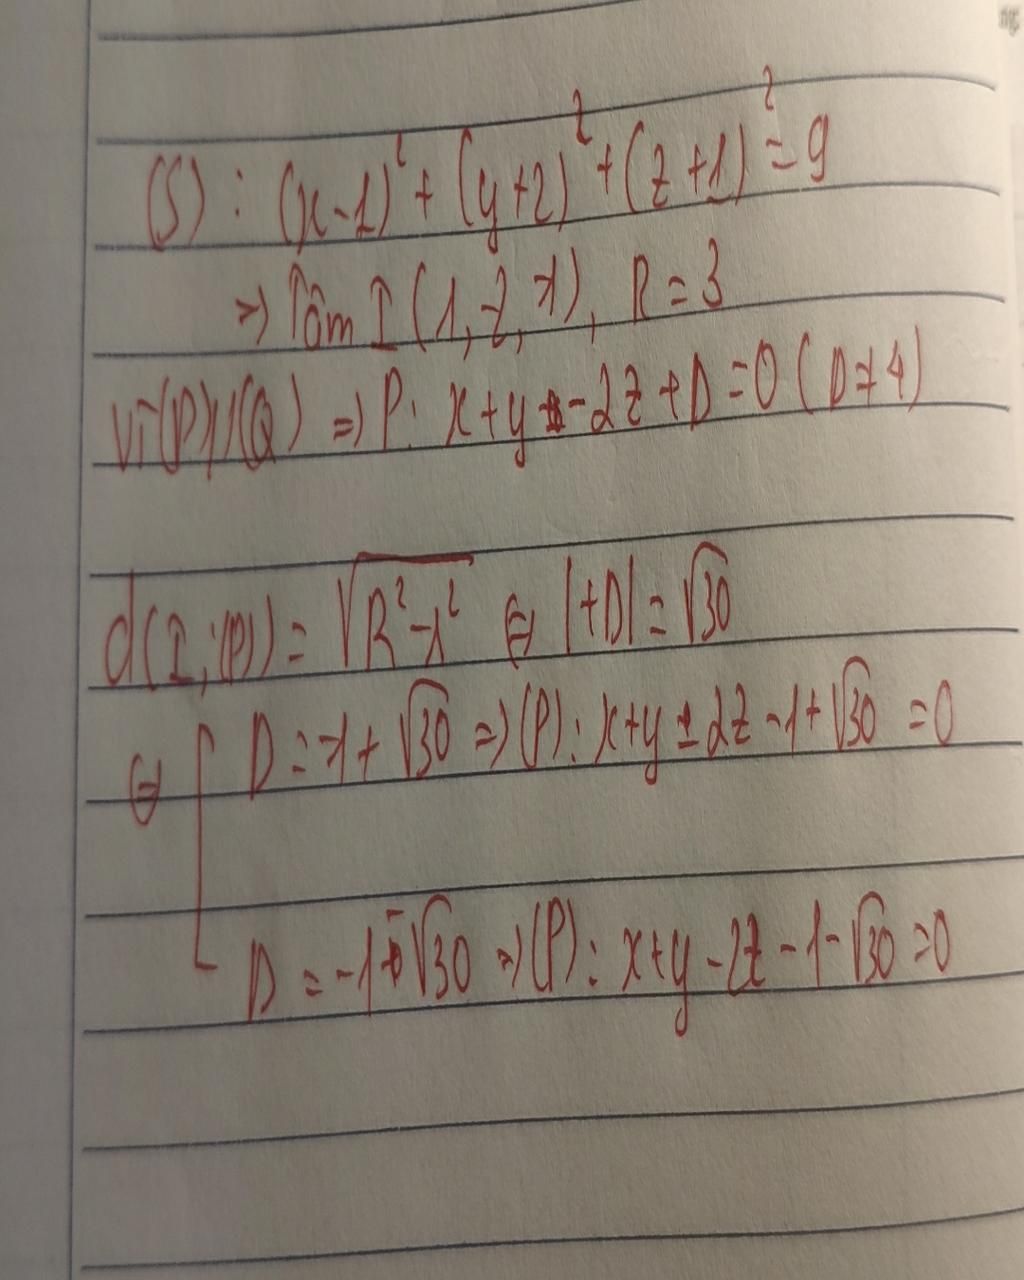 (S) : (x-1)² + (y+2)² + (z+1)² = 9
=> Tâm I (1,-2,-1), R = 3
Vì (P)//(Q) => P: x+y-2z+D=0 (D≠4)
d(I,(P)) = √(R²-r²) ⇔ |1+D| = √30
⇔ [ D = -1+√30 => (P): x+y-2z-1+√30 =0
D = -1-√30 => (P): x+y-2z-1-√30=0